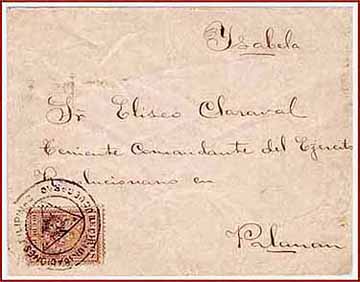 Isabela
Sr Eliseo Claraval
Teniente Comandante del Ejercito
Revolucionario en
Palanan